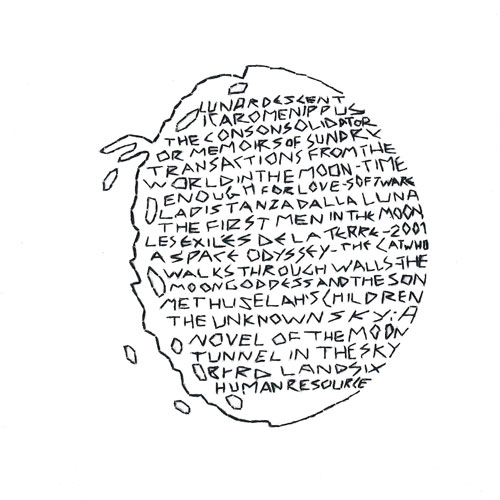 LUNAR DESCENT
ICAROMENIPPUS
THE CONSONSOLIDATOR
OR MEMOIRS OF SUNDRY
TRANSAKTIONS FROM THE
WORLD IN THE MOON-TIME
ENOUGH FOR LOVE-SOFTWARE
LA DISTANZA DALLA LUNA
THE FIRST MEN IN THE MOON
LES EXILES DE LA TERRE-2001
A SPACE ODYSSEY-THE CAT WHO
WALKS THROUGH WALLS-THE
MOON GODDESS AND THE SON
METHUSELAH'S CHILDREN
THE UNKNOWN SKY: A
NOVEL OF THE MOON
TUNNEL IN THE SKY
LANDSIX
HUMAN RESOURCE